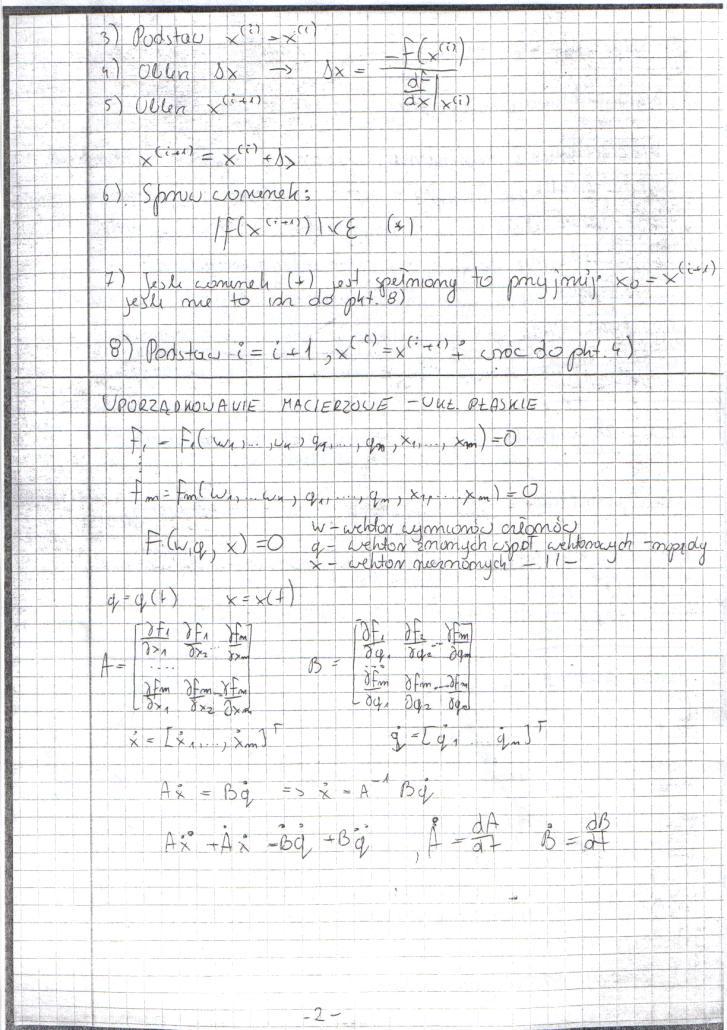 3) Podstaw x^(i) = x^(i)
4) Oblicz Δx → Δx = -f(x^(i)) / df/dx|x^(i)
5) Oblicz x^(i+1)
x^(i+1) = x^(i) + Δx
6) Spraw warunek:
|f(x^(i+1))| < ε (*)
7) Jeśli warunek (*) jest spełniony to przyjmij x₀ = x^(i+1)
jeśli nie to idź do pkt. 8)
8) Podstaw i = i+1, x^(i) = x^(i+1) i wróć do pkt. 4)
UPORZĄDKOWANIE MACIERZOWE – UKŁ. PŁASKIE
F₁ = F₁(w₁,...,wₙ, q₁,...,qₙ, x₁,...,xₘ) = 0
⋮
fₘ = fₘ(w₁,...wₙ, q₁,...,qₙ, x₁,...xₘ) = 0
F(w,q,x) = 0 w – wektor wymiarów członów
q – wektor znanych współ. wektorowych – napędy
x – wektor nieznanych –||–
q = q(t) x = x(t)
A = [∂f₁/∂x₁ ∂f₁/∂x₂ ... ∂fₘ/∂xₘ B = [∂f₁/∂q₁ ∂f₂/∂q₂ ... ∂fₘ/∂qₙ
....
∂fₘ/∂x₁ ∂fₘ/∂x₂ ... ∂fₘ/∂xₘ] ∂fₘ/∂q₁ ∂fₘ/∂q₂ ... ∂fₘ/∂qₙ]
ẋ = [ẋ₁,...,ẋₘ]ᵀ q̇ = [q̇₁ ... q̇ₙ]ᵀ
Aẋ = Bq̇ => ẋ = A⁻¹Bq̇
Aẍ + Ȧẋ = Ḃq̇ + Bq̈ , Ȧ = dA/dt Ḃ = dB/dt
-2-